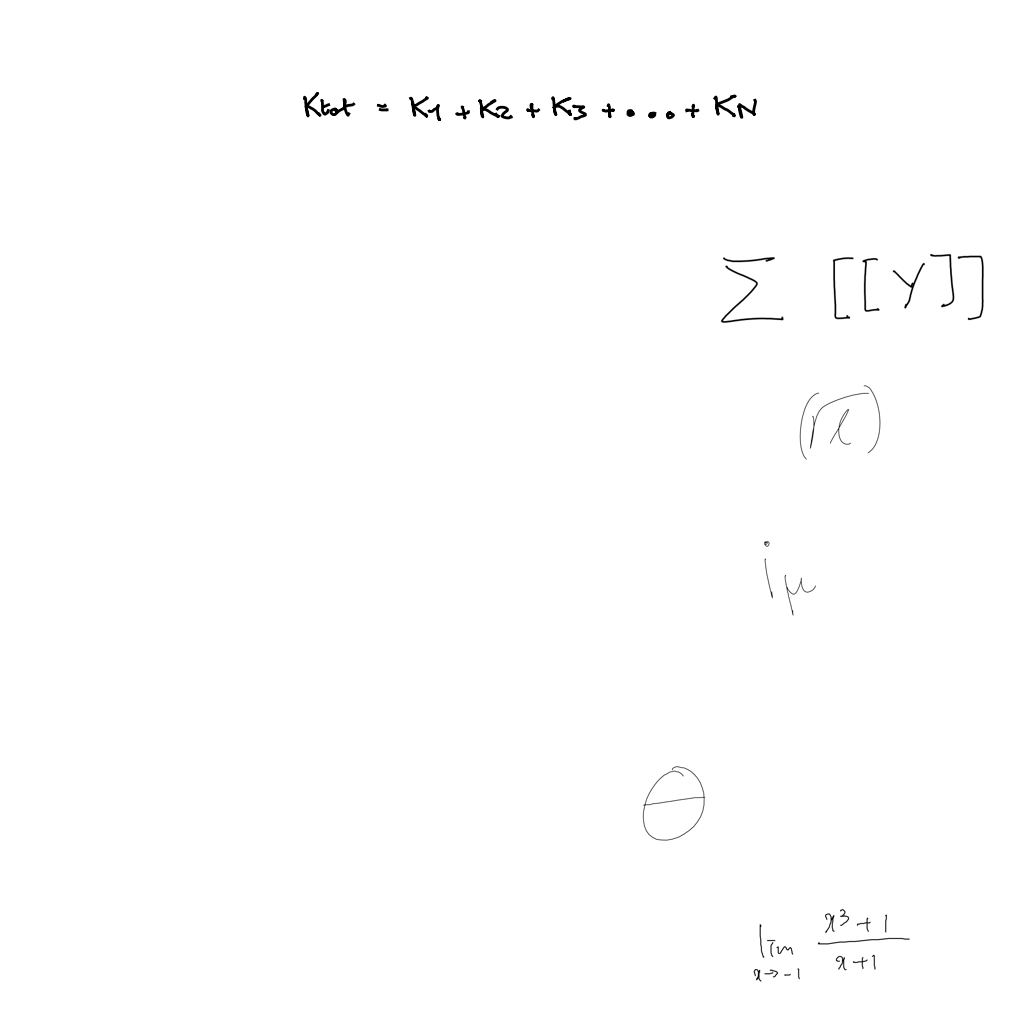 Ktot = K1 + K2 + K3 + ... + KN
∑ [[Y]]
(√x)
iμ
θ
lim x→-1 (x³+1)/(x+1)